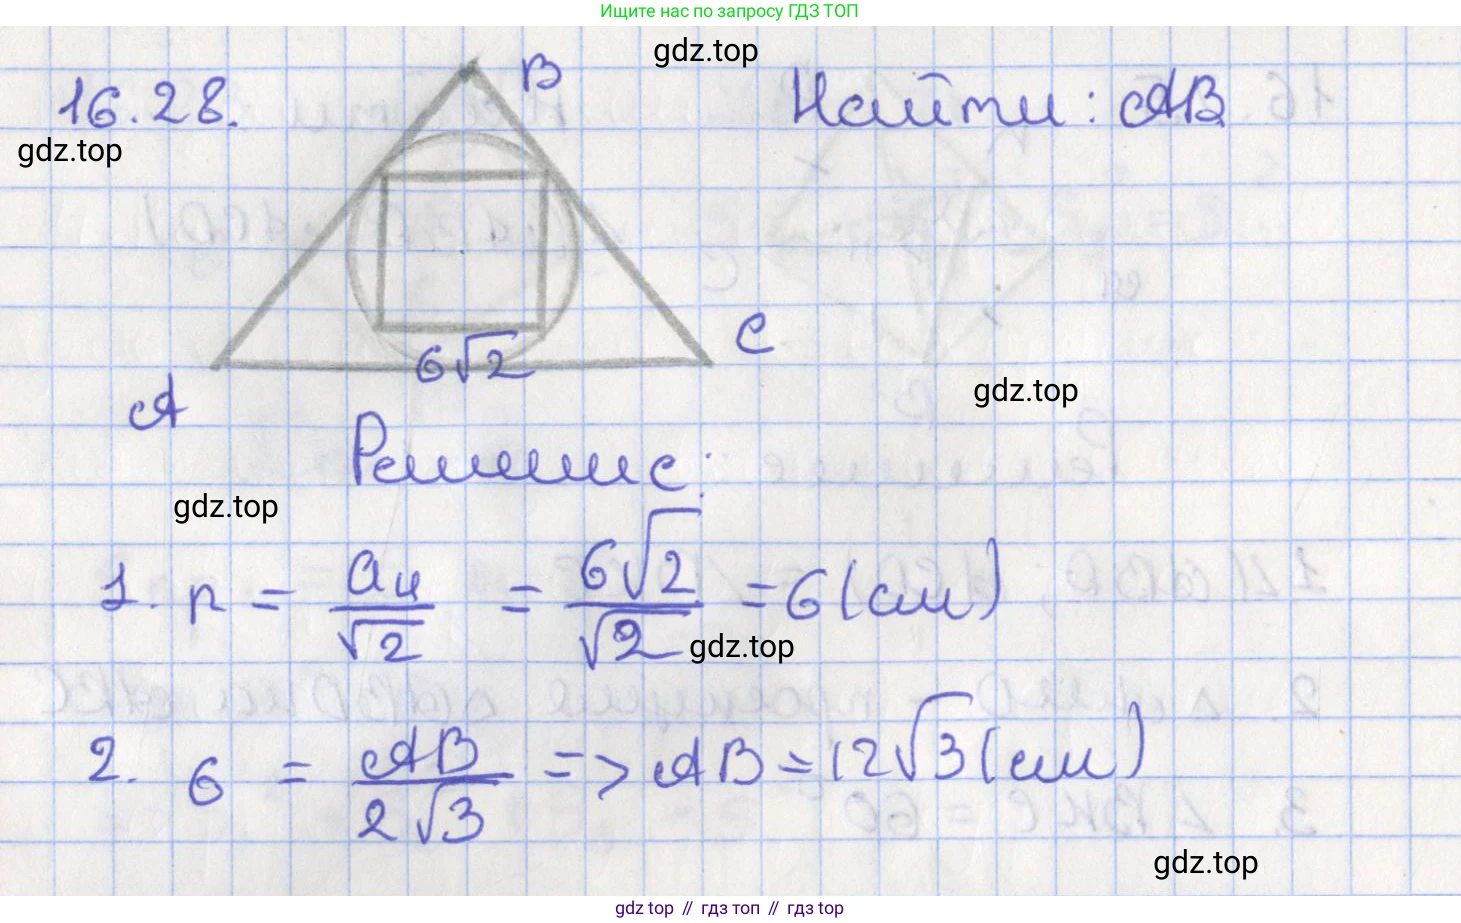 Ищите нас по запросу ГДЗ ТОП
gdz.top
16.28.
B
Найти: AB
gdz.top
C
6√2
gdz.top
A
Решение:
gdz.top
1. r = a₄/√2 = 6√2/√2 = 6 (см)
gdz.top
2. 6 = AB/2√3 => AB = 12√3 (см)
gdz.top
gdz top // гдз топ // gdz top